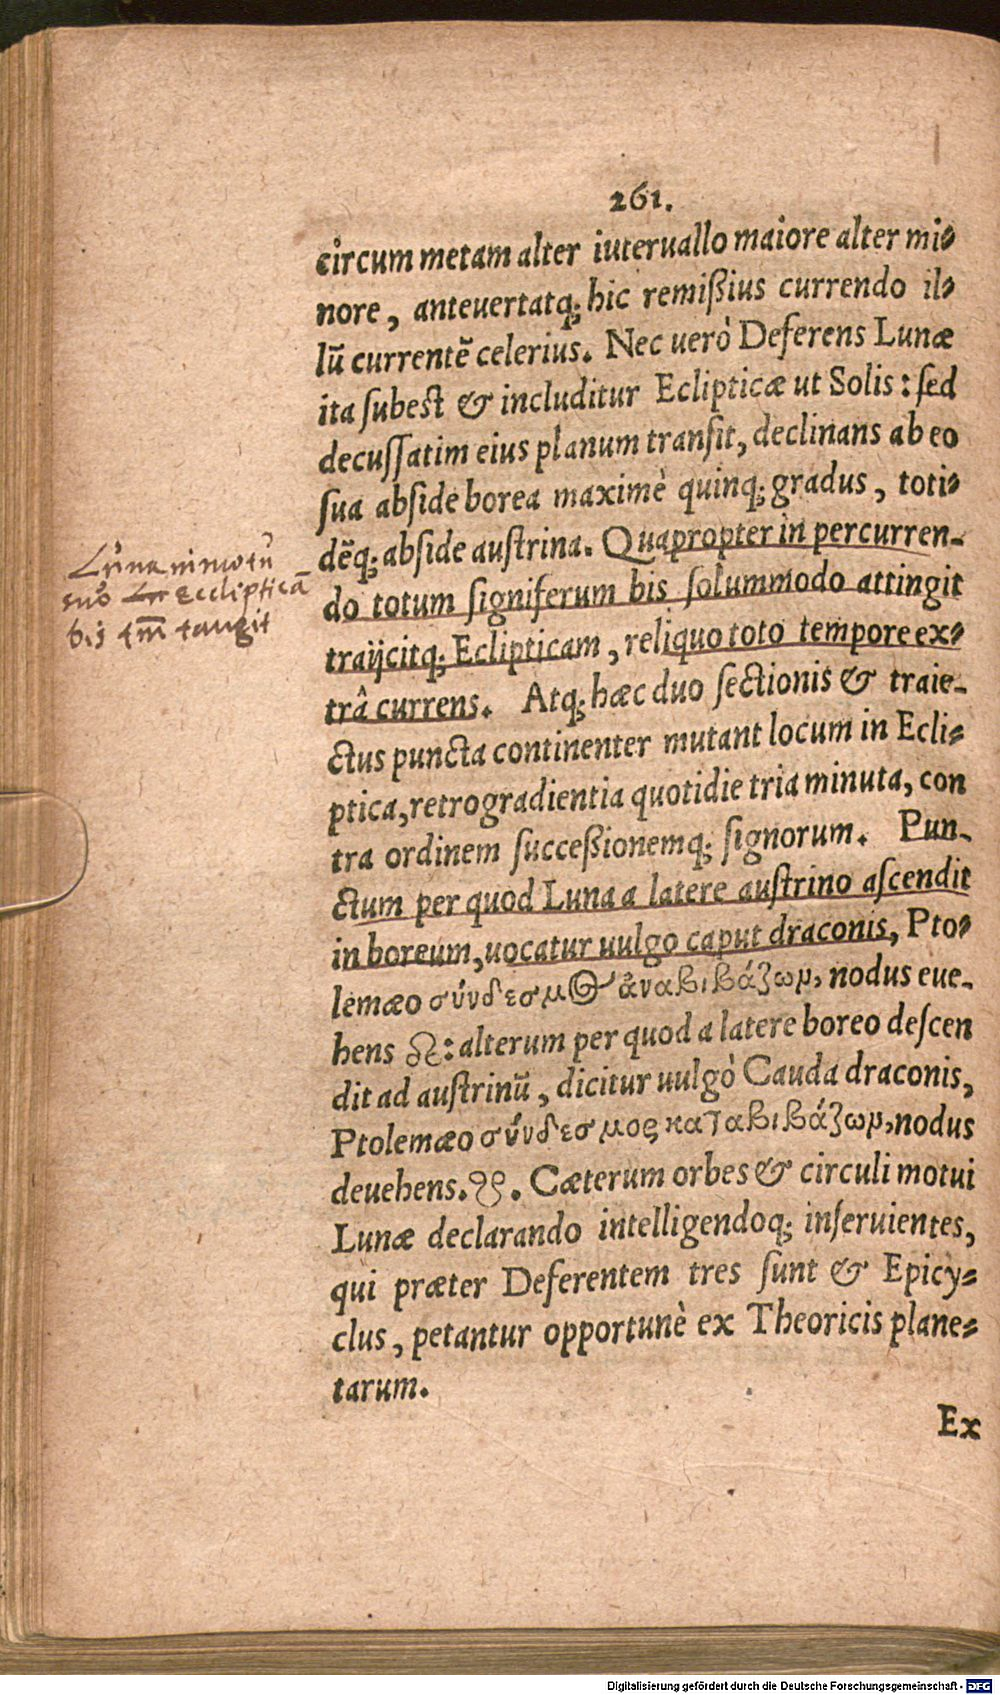 261.
circum metam alter iuteruallo maiore alter mi⸗
nore, anteuertatq́; hic remißius currendo il⸗
lū currentē celerius. Nec uerò Deferens Lunæ
ita ſubest & includitur Eclipticæ ut Solis: ſed
decuſſatim eius planum tranſit, declinans ab eo
ſua abſide borea maximè quinq; gradus, toti⸗
dēq; abſide auſtrina. Quapropter in percurren-
do totum ſigniferum bis ſolummodo attingit
traijcitq; Eclipticam, reliquo toto tempore ex⸗
trâ currens. Atq; hæc duo ſectionis & traie-
ctus puncta continenter mutant locum in Ecli⸗
ptica, retrogradientia quotidie tria minuta, con
tra ordinem ſucceßionemq; ſignorum. Pun-
ctum per quod Luna a latere auſtrino aſcendit
in boreum, uocatur uulgo caput draconis, Pto⸗
lemæo σύνδεσμος ἀναβιβάζων, nodus eue-
hens ☊: alterum per quod a latere boreo deſcen
dit ad auſtrinū, dicitur uulgò Cauda draconis,
Ptolemæo σύνδεσμος καταβιβάζων, nodus
deuehens. ☋. Cæterum orbes & circuli motui
Lunæ declarando intelligendoq; inſeruientes,
qui præter Deferentem tres ſunt & Epicy⸗
clus, petantur opportunè ex Theoricis plane⸗
tarum.
Ex
Luna in motu
suo Eccliptica
bis tm̄ tangit
Digitalisierung gefördert durch die Deutsche Forschungsgemeinschaft - DFG